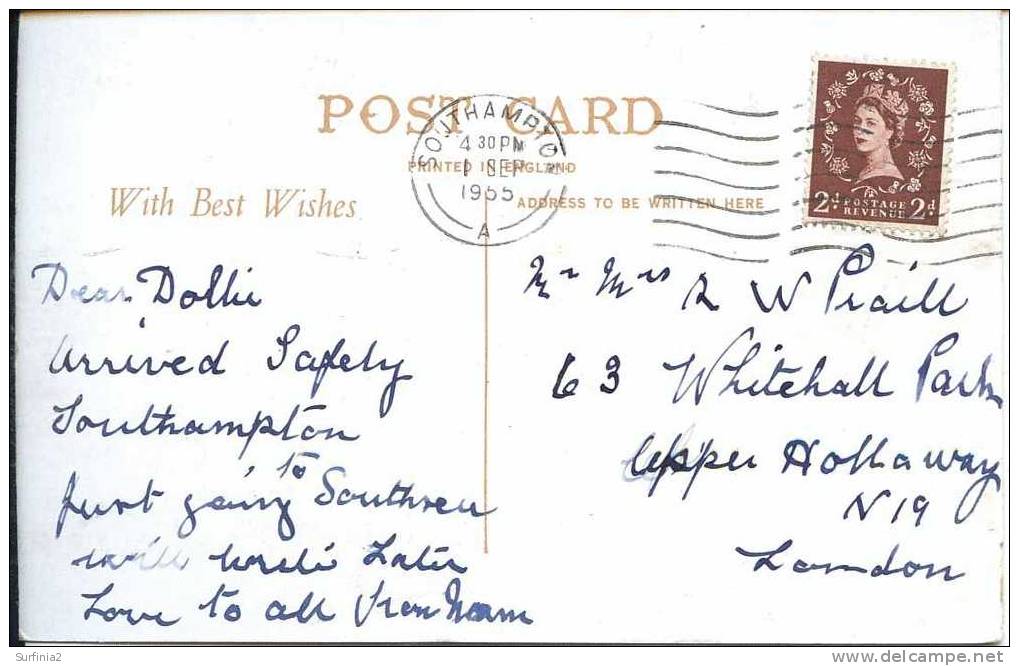 POST CARD
SOUTHAMPTON
4 30 PM
1 SEP
1955
A
PRINTED IN ENGLAND
With Best Wishes
ADDRESS TO BE WRITTEN HERE
2d POSTAGE REVENUE 2d
Dear Dollie
Arrived Safely
Southampton
just going to Southsea
will write Later
Love to all from Mam
Mr Mrs R W Praill
63 Whitehall Park
Upper Hollaway
N 19
London
Surfinia2
delcampe.net